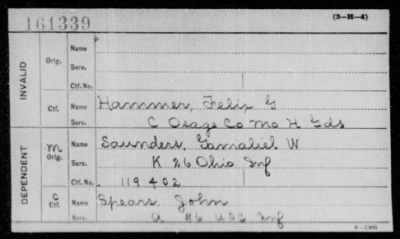 161339
(3-H-4)
INVALID
Orig.
Name
Serv.
Ctf. No.
Ctf.
Name Hammer, Felix G
Serv. C Osage Co Mo H Gds
DEPENDENT
M
Orig.
Name Saunders, Gamaliel W
Serv. K 26 Ohio Inf
Ctf. No. 119402
C
Ctf.
Name Spears John
Serv. A 46 USC Inf